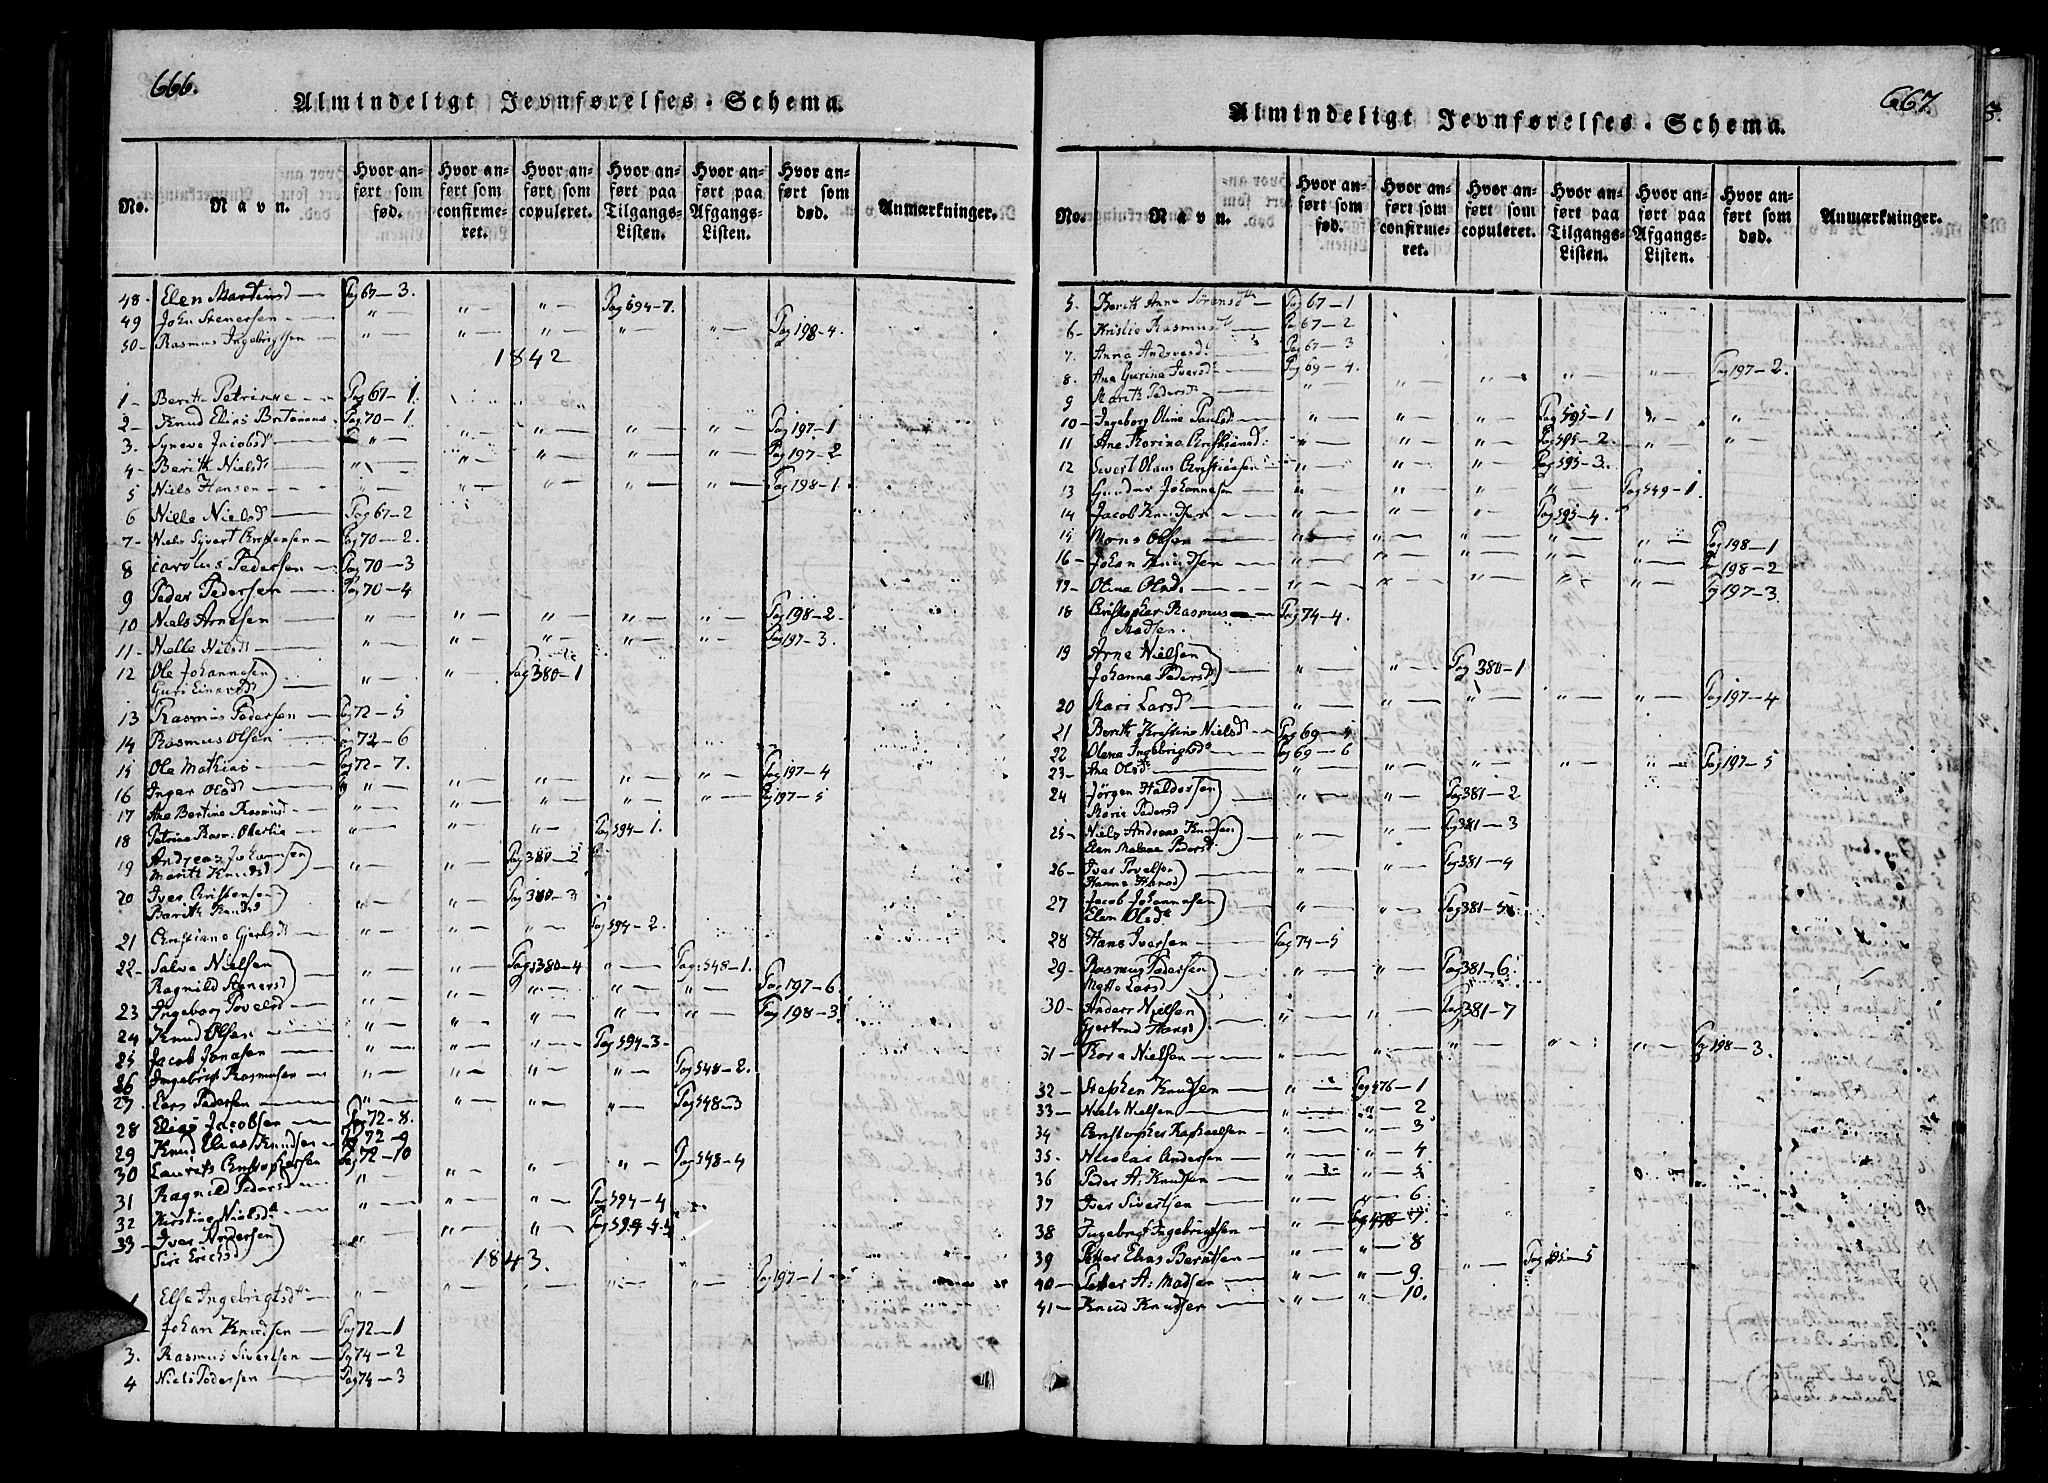 666.
Almindeligt Jevnførelses-Schema.
No. Navn. Hvor anført som fød. Hvor anført som confirmeret. Hvor anført som copuleret. Hvor anført paa Tilgangs-Listen. Hvor anført paa Afgangs-Listen. Hvor anført som død. Anmærkninger.
48 - Elen Martinsd — Pag 67 - 3. " — " — Pag 594 - 7.
49 John Stenersen — " " — " —
50 - Rasmus Ingebrigtsen — " — " — " — " — " — Pag 198 - 4.
1842
1 - Berith Petrikke — Pag 67 - 1.
2 - Knud Elias Pag 70 - 1
3. Synneve Jacobsd — " — " — " — " — " — Pag 197 - 1
4 - Berith Nielsd — " — " — " — " — " — Pag 197 - 2
5 Niels Hansen — " — " — " — " — " — Pag 198 - 1.
6 Nille Nielsd — Pag 67 - 2
7 - Niels Syvert Christensen — Pag 70 - 2.
8 Carolus Pedersen — Pag 70 - 3
9 Peder Pedersen — Pag 70 - 4
10 Niels Arnesen — " — " — " — " — " — Pag 198 - 2.
11 - Nille Nielsd — " — " — " — " — " — Pag 197 - 3.
12 Ole Johannesen
Guri Einarsd — " — " — Pag 380 - 1
13 Rasmus Pedersen — Pag 72 - 5
14 Rasmus Olsen — Pag 72 - 6
15 Ole Mathias — Pag 72 - 7.
16 Inger Olsd — " — " — " — " — " — Pag 197 - 4
17 Ane Bertine Rasmusd — " — " — " — " — " — Pag 197 - 5
18 Petrine Rasm. — " — " — " — Pag 594 - 1.
19 Andreas Johannsen
Marith Knudsd — " — " — Pag 380 - 2
20 Iver Christensen
Berith Knudsd — " — " — Pag 380 - 3
21 Christiane Gjertsd — " — " — " — Pag 594 - 2.
22 - Salve Nielsen
Ragnild — " — " — Pag 380 - 4 " — Pag: 548 - 1.
23 Ingeborg Povelsd — " — " — " — " — " — Pag 197 - 6.
24 Knud Olsen — " — " — " — " — " — Pag 198 - 3.
25 Jacob Jonasen — " — " — " — Pag 594 - 3 -
26 Ingebrigt Rasmusen — " — " — " — Pag 548 - 2.
27. Lars Pedersen — " — " — " — " — Pag 548 - 3
28 Elias Jacobsen — Pag 72 - 8.
29 Knud Elias Knudsen — Pag 72 - 9
30 Laurits Christophersen Pag 72 - 10
31 Ragnild Pedersd — " — " — " — " — Pag 548 - 4
32 Kirstine Nielsd — " — " — " — Pag 594 - 4
33 - Iver Andersen
Siri Erichsd " — " — " — Pag 594 - 5
1843.
1 Else Ingebrigtsd — " — " — " — " — " — Pag 197 - 1
Johan Knudsen — Pag 72 - 1
3. Rasmus Sivertsen — Pag 74 - 2
4 Niels Pedersen — Pag 74 - 3
667.
Almindeligt Jevnførelses-Schema.
No. Navn. Hvor anført som fød. Hvor anført som confirmeret. Hvor anført som copuleret. Hvor anført paa Tilgangs-Listen. Hvor anført paa Afgangs-Listen. Hvor anført som død. Anmærkninger.
5. Berith Anne Sörensd — Pag 67 - 1
6 - Kristie Rasmusd — Pag 67 - 2
7. Anna — Pag 67 - 3
8. Ane Gurine Iversd — Pag 69 - 4.
9 Marith Pedersd — " — " — " — " — " — Pag 197 - 2.
10 - Ingeborg Oline Paulsd " — " — " — Pag 595 - 1 " — " —
11 Ane Korina Christiansd: " — " — " — Pag 595 - 2. " — " —
12 Sivert Olaus Christiansen — " — " — " — Pag 595 - 3.
13 Gunder Johannesen — " — " — " — " — Pag 549 - 1.
14 Jacob Knudsen — " — " — " — Pag 595 - 4.
15 Mons Olsen — " — " — " — " — " — Pag 198 - 1
16 - Johan Knudsen — " — " — " — " — " — 198 - 2
17 - Oline Olsd. — " — " — " — " — " — Pag 197 - 3.
18 Christopher Rasmus
Madsen. — Pag 74 - 4.
19 Arne Nielsen
Johanne Pedersd — " — " — Pag 380 - 1
20 Kari Larsd — " — " — " — " — " — Pag 197 - 4
21 Berith Kristine Nielsd — Pag 69 - 5
22 Olena Ingebrigtsd — Pag 69 - 6
23 - Ane Olsd — " — " — " — " — " — Pag 197 - 5
24 Jörgen Haldorsen
Marie Pedersd " — " — Pag 381 - 2
25 - Niels Andreas Knudsen
Elen Malene Pedersd " — " — Pag 381 - 3
26 - Iver Povelsen
Hanne Hansd " — " — Pag 381 - 4
27 Jacob Johannesen
Elen Olsd " — " — Pag 381 - 5
28 Hans Iversen — Pag 74 - 5
29 - Rasmus Pedersen
Mette Larsd — " — " — Pag 381 - 6.
30 - Anders Nielsen
Gjertrud Hansd — " — " — Pag 381 - 7
31 — Nielsen — " — " — " — " — " — Pag 198 - 3.
32 — Stephen Knudsen — " — Pag 476 - 1
33 — Niels Nielsen — " — " - 2
34 Christopher Raphaelsen — " — " - 3
35. Nicolai Andersen — " — " - 4
36 Peder A: Knudsen — " — " - 5
37 Iver Sivertsen — " — " - 6
38 Ingebrigt Ingebrigtsen — " — Pag 476 - 7.
39 Petter Elias Berntsen — " — " - 8
40 — Petter A: Madsen — " — " - 9. " — Pag 595 - 5
41 — Knud Knudsen — " — " - 10.